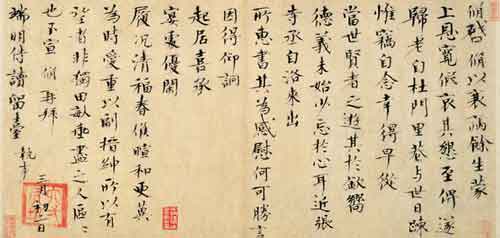 脩啓脩以衰病餘生蒙
上恩寬假哀其懇至俾遂
歸老自杜門里巷與世日疎
惟竊自念幸得早從
當世賢者之遊其於欽嚮
德義未始少忘於心耳近張
寺丞自洛來出
所惠書其為感慰何可勝言
因得仰詗
起居喜承
宴處優閑
履況清福春候暄和更冀
為時愛重以副搢紳所以有
望者非獨田畝垂盡之人區〻
也不宣脩再拜
端明侍讀留臺執事
三月初二日